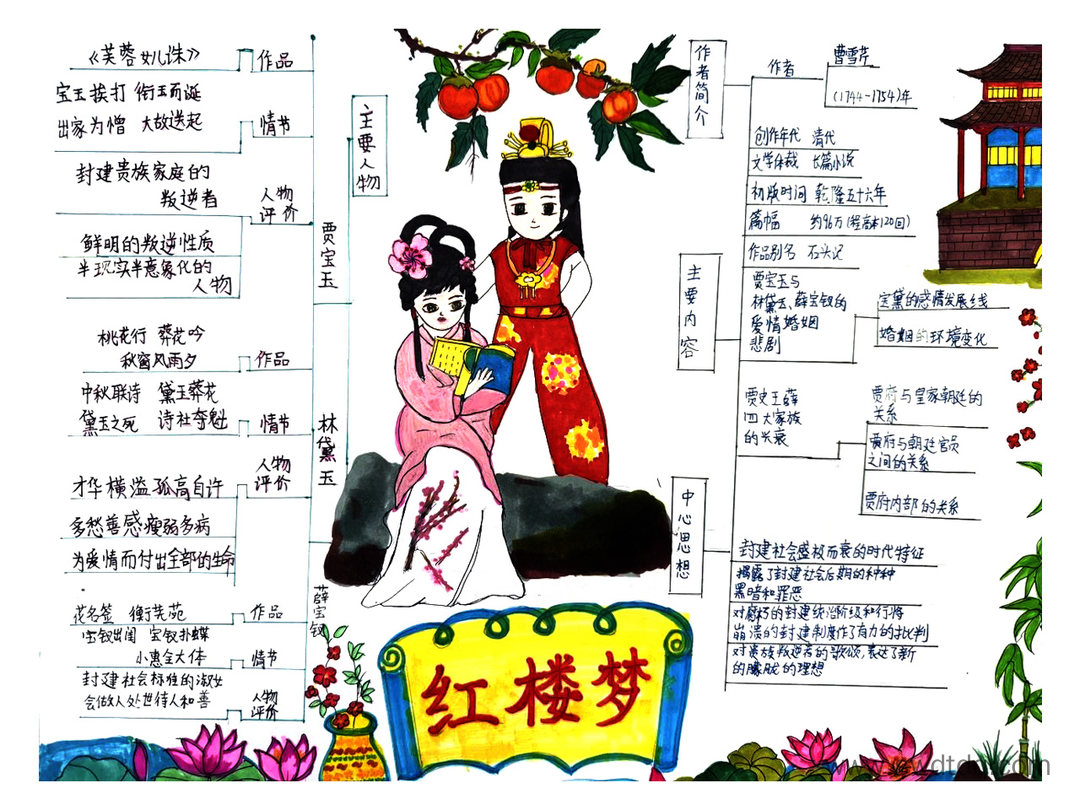 《芙蓉女儿诛》
作品
宝玉挨打 衔玉而诞
出家为憎 大故迭起
情节
封建贵族家庭的
叛逆者
人物
评价
鲜明的叛逆性质
半现实半意象化的
人物
贾宝玉
主要人物
桃花行 葬花吟
秋窗风雨夕
作品
中秋联诗 黛玉葬花
黛玉之死 诗社夺魁
情节
人物
评价
才华横溢孤高自许
多愁善感瘦弱多病
为爱情而付出全部的生命
林黛玉
花名签 蘅芜苑
作品
宝钗出闺 宝钗扑蝶
小惠全大体
情节
封建社会标准的淑女
会做人处世待人和善
人物
评价
薛宝钗
红楼梦
作者简介
作者
曹雪芹
(1744-1754)年
创作年代 清代
文学体裁 长篇小说
初版时间 乾隆五十六年
篇幅 约96万(程高本120回)
作品别名 石头记
主要内容
贾宝玉与
林黛玉、薛宝钗的
爱情婚姻
悲剧
宝黛的感情发展线
婚姻的环境变化
贾史王薛
四大家族
的兴衰
贾府与皇家朝廷的
关系
贾府与朝廷官员
之间的关系
贾府内部的关系
中心思想
封建社会盛极而衰的时代特征
揭露了封建社会后期的种种
黑暗和罪恶
对腐朽的封建统治阶级和行将
崩溃的封建制度作了有力的批判
对贵族叛逆者的歌颂,表达了新
的朦胧的理想